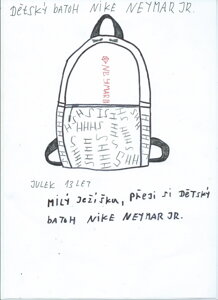 DĚTSKÝ BATOH NIKE NEYMAR JR.
JULEK 13 LET
MILÝ JEŽÍŠKU, PŘEJI SI DĚTSKÝ
BATOH NIKE NEYMAR JR.